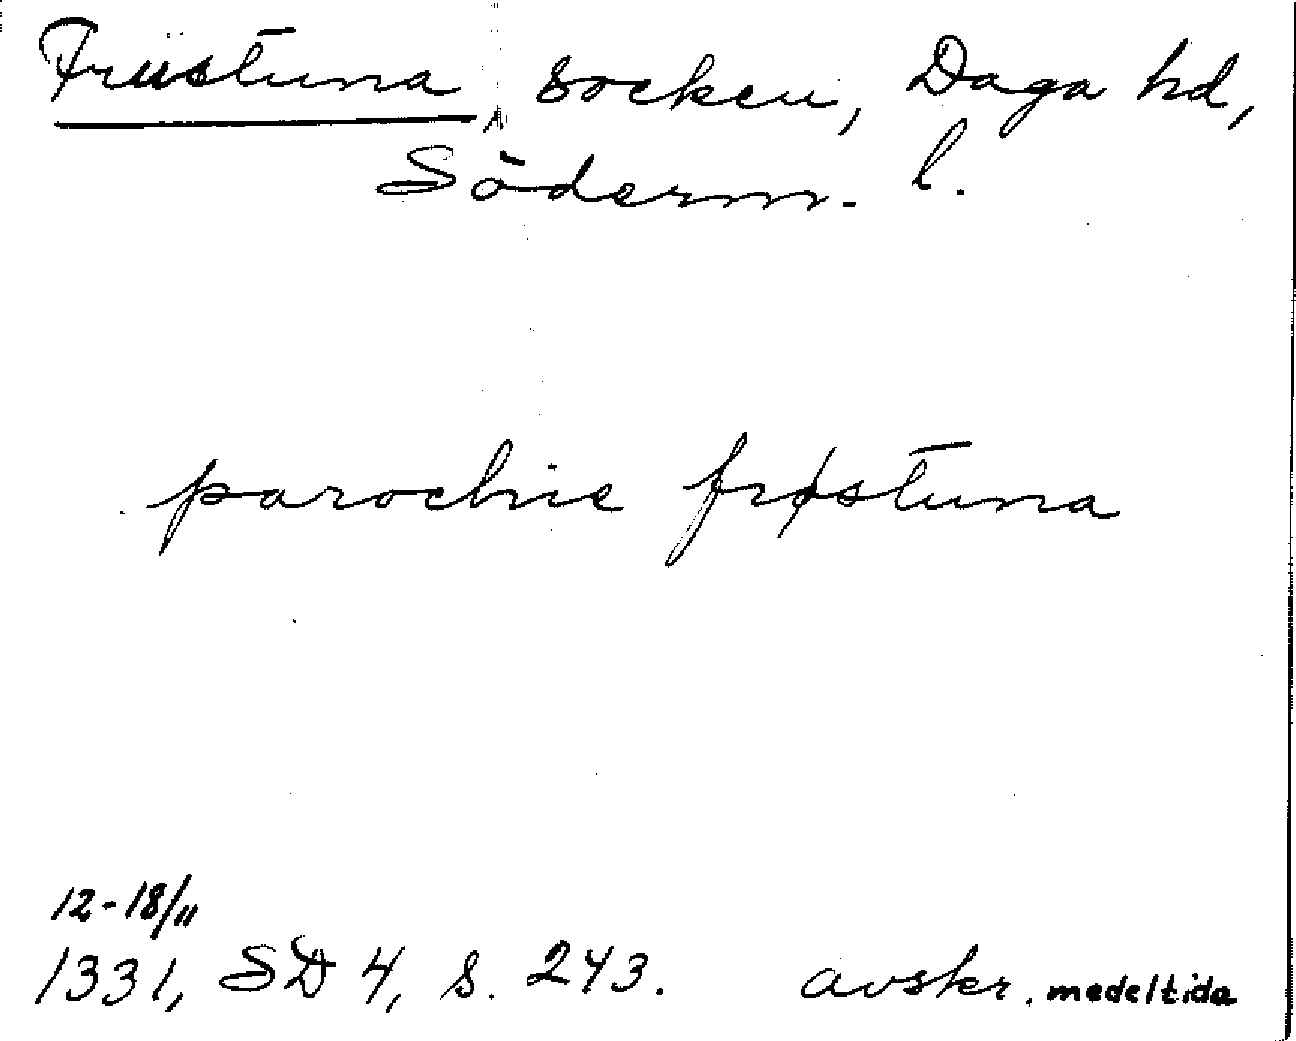 Frustuna socken, Daga hd,
Söderm. l.
parochie frøstuna
12-18/11
1331, SD 4, s. 243. avskr. medeltida